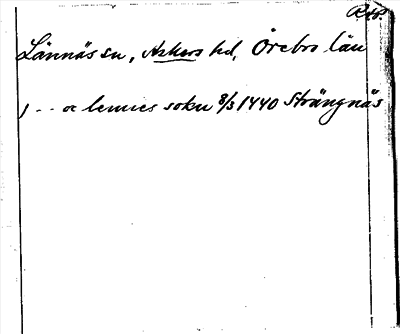 Lännäs sn, Askers hd, Örebro län
j -- oc lennes sokn 8/3 1440 Strängnäs